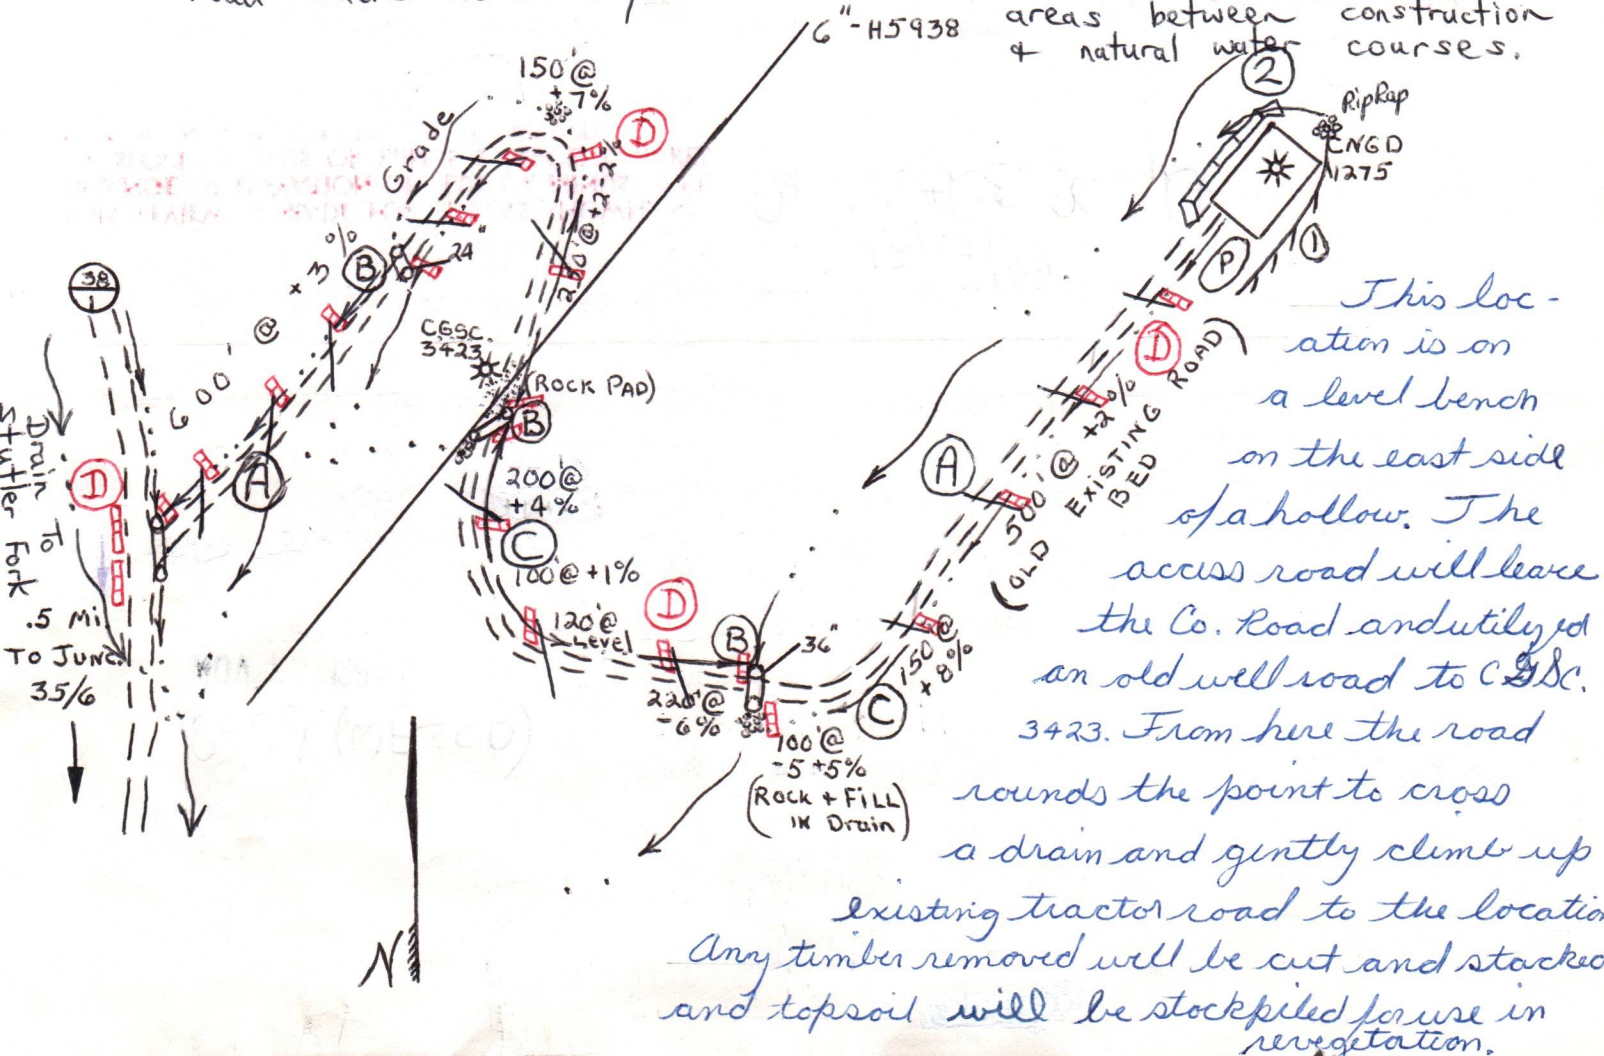 6"-H5938
areas between construction
& natural water courses.
150'@
+7%
D
2
RipRap
CNGD
1275
Grade
+3%
B
24"
250'@+2-2%
P
1
38
CGSC.
3423
(ROCK PAD)
B
600' @
D
A
Drain To
Stutler Fork
.5 Mi.
TO JUNC.
35/6
200'@
+4%
C
100'@+1%
120'@
Level
D
B
36"
220'@
-6%
100'@
-5+5%
(ROCK + FILL
IN Drain)
C
150'@
+8%
A
500'@ +2%
(OLD EXISTING ROAD)
BED
D
N
This loc-
ation is on
a level bench
on the east side
of a hollow. The
access road will leave
the Co. Road and utilyzed
an old well road to CGSC.
3423. From here the road
rounds the point to cross
a drain and gently climb up
existing tractor road to the location
Any timber removed will be cut and stacked
and topsoil will be stockpiled for use in
revegetation.